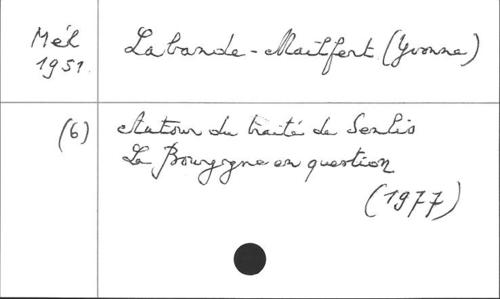 Mél
1951.
Labande-Mailfert (Yvonne)
(6)
Autour du traité de Senlis
La Bourgogne en question
(1977)